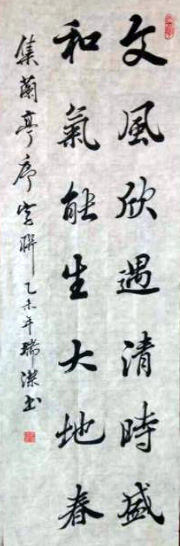 文風欣遇清時盛
和氣能生大地春
集蘭亭序字聯乙未年瑞潔書